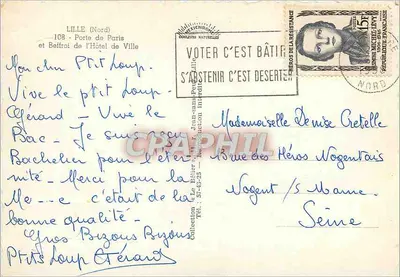 LILLE (Nord)
108 - Porte de Paris
et Beffroi de l'Hôtel de Ville
Mon chin Ptit Loup.
Vive le ptit Loup
Gérard - Vive le
Bac - Je suis
Bachelier pour l'éter
nité - Merci pour la
Me--e c'était de la
bonne qualité -
Gros Bizous Bizous
Ptits Loup Gérard
VOTER C'EST BÂTIR
S'ABSTENIR C'EST DESERTER
HEROS DE LA RESISTANCE
15F
SIMONE MICHEL-LEVY
REPUBLIQUE FRANÇAISE
NORD
Mademoiselle Denise Cretelle
rue des Héros Nogentais
Nogent /s Marne.
Seine
CPAPHIL.com